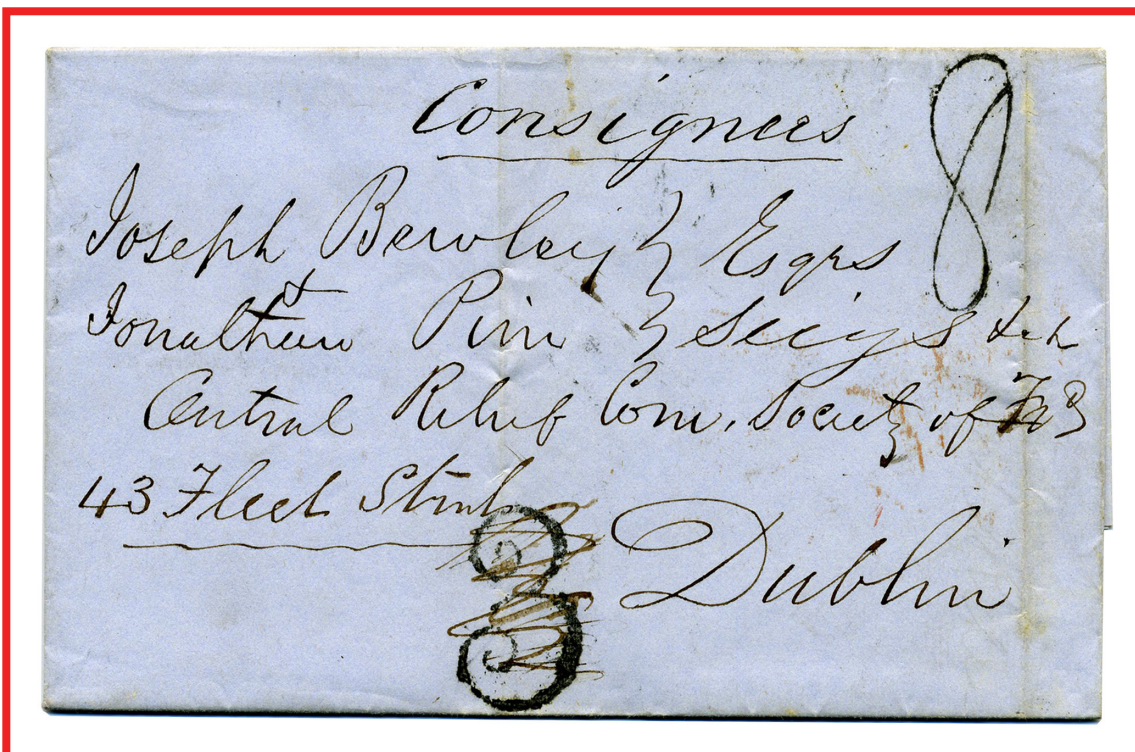 Consignees
8
Joseph Bewley } Esqrs
&
Jonathan Pim } Secys
Central Relief Com. Society of
43 Fleet Street
Dublin
3